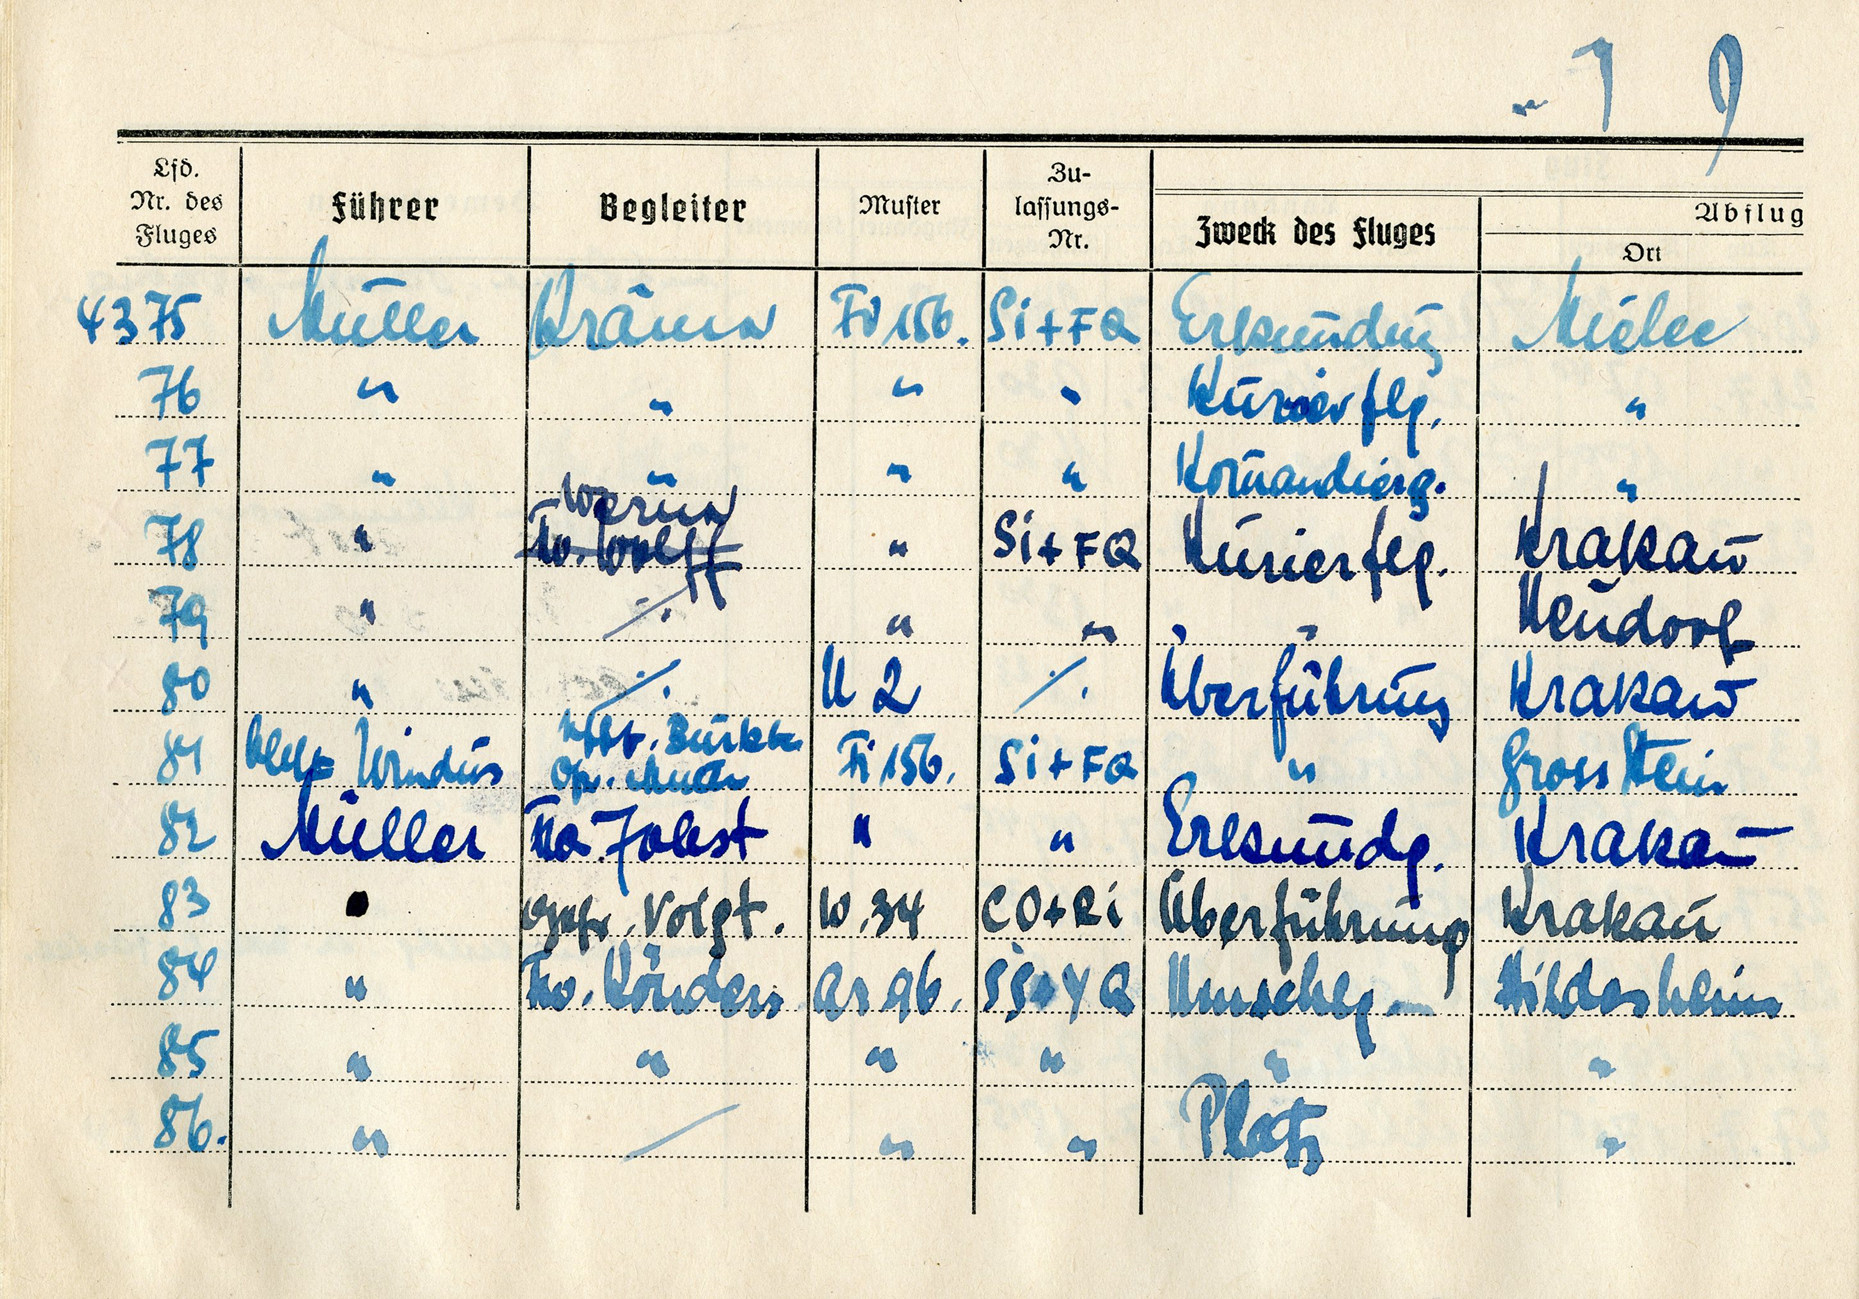 Lfd. Nr. des Fluges Führer Begleiter Muster Zulassungs-Nr. Zweck des Fluges Abflug Ort
4375 Müller Fi 156. Si+FQ Erkundung Mielec
76 " " " " Kurierflg. "
77 " " " " Komandierg. "
78 " Fw. Wolff " Si+FQ Kurierflg. Krakau
79 " ./. " " " " Neudorf
80 " ./. U 2 ./. Überführung Krakau
81 Windus Fi 156. Si+FQ " Gross Stein
82 Müller Jobst " " Erkundg. Krakau
83 " Voigt. W.34 CO+Ri Überführung Krakau
84 " Fw. Könders Ar 96. YQ Umschlg Hildesheim
85 " " " " " "
86. " / " " Platz "